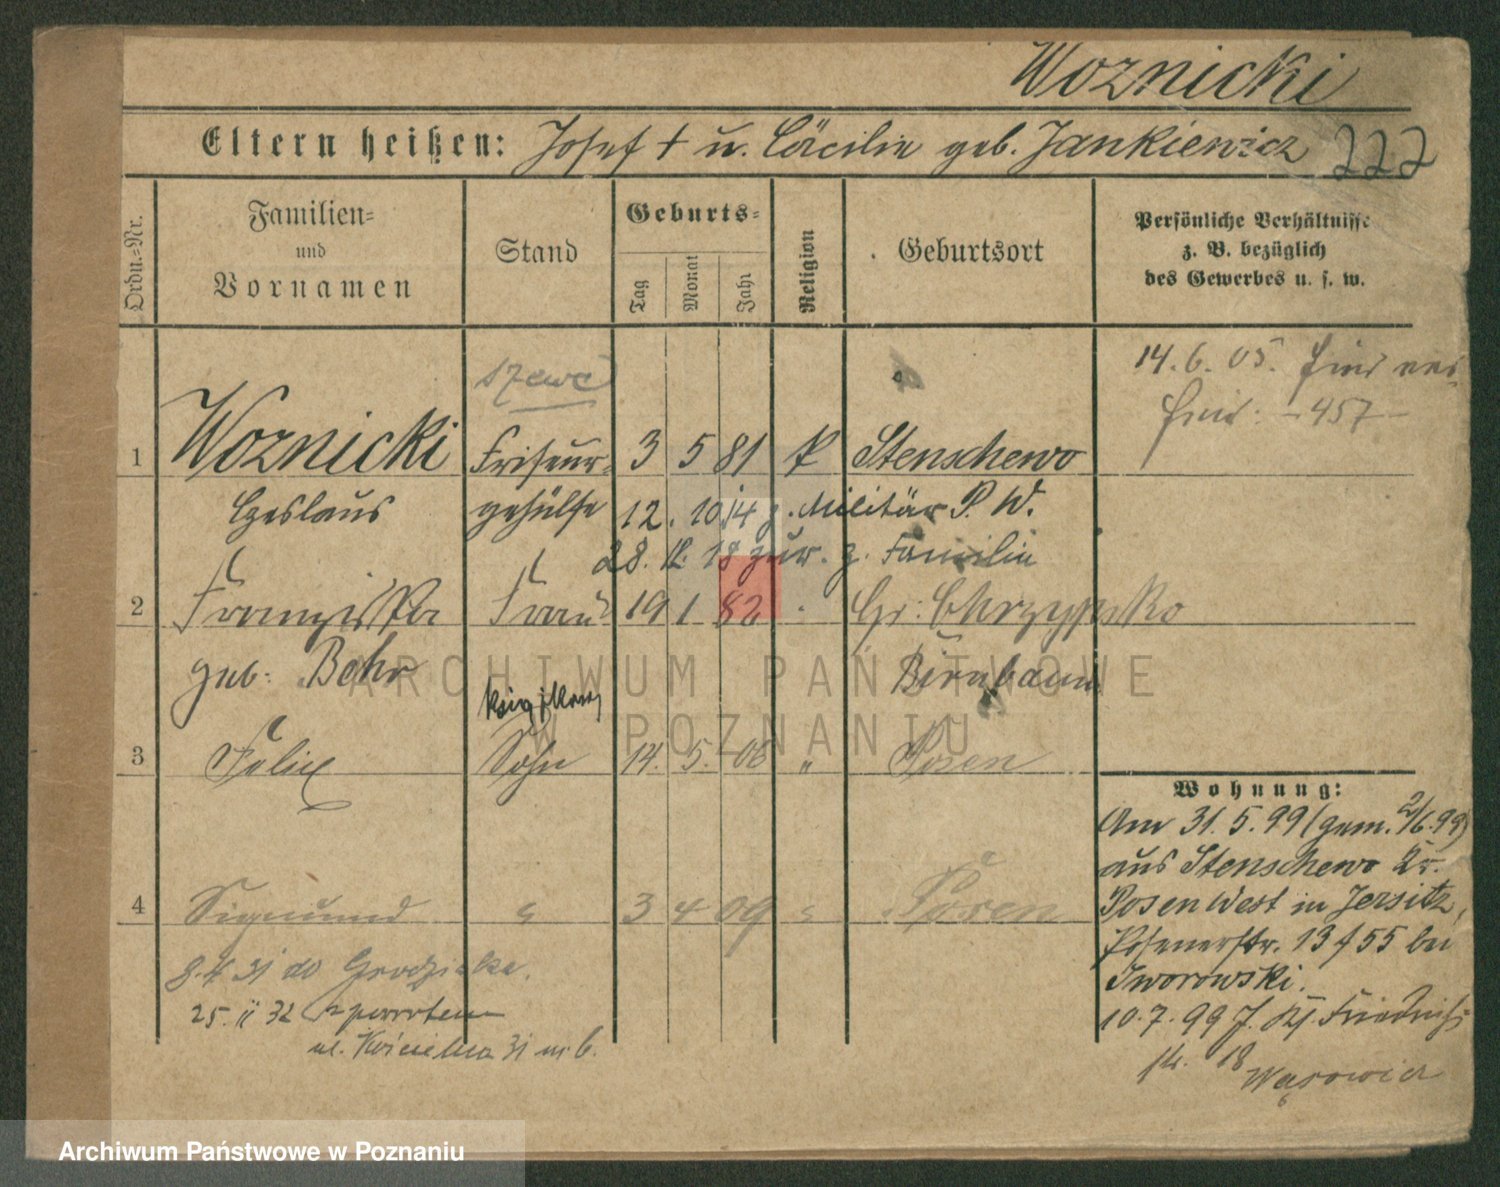 Woznicki
Eltern heißen: Josef † u. Cäcilie geb. Jankiewicz 222
Ordn.=Nr.
Familien=
und
Vornamen
Stand
Geburts=
Tag
Monat
Jahr
Religion
Geburtsort
Persönliche Verhältnisse
z. B. bezüglich
des Gewerbes u. s. w.
14. 6. 05.
457
szewc
1 Woznicki Friseur= 3 5 81 k Stenschewo
Ceslaus gehülfe 12. 10. 14 z. Militär P. W.
28. 12. 18 zur. z. Familie
2 Franziska Frau 19 1 82 Gr: Chrzypsko
geb: Behr Birnbaum
3 Felix Sohn 14. 5. 06 " Posen
4 Sigmund " 3 4 09 " Posen
8. 4 31 do Grodziska.
25. II 32 z powrotem
ul. Kościelna 31 m. 6.
Wohnung:
Am 31. 5. 99 (gem. 2/6. 99)
aus Stenschewo Kr.
Posen West in Jersitz,
Posenerstr. 13 f 55 bei
Jworowski.
10. 7. 99 J. Kf. Friedrichs
14. 18
Wąsowicz
ARCHIWUM PAŃSTWOWE
W POZNANIU
Archiwum Państwowe w Poznaniu